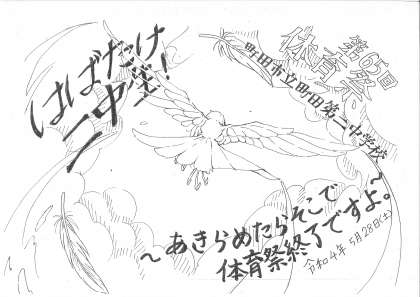 第65回
体育祭
町田市立町田第二中学校
はばたけ
二中生!
~あきらめたらそこで
体育祭終了ですよ。~
令和4年5月28日(土)